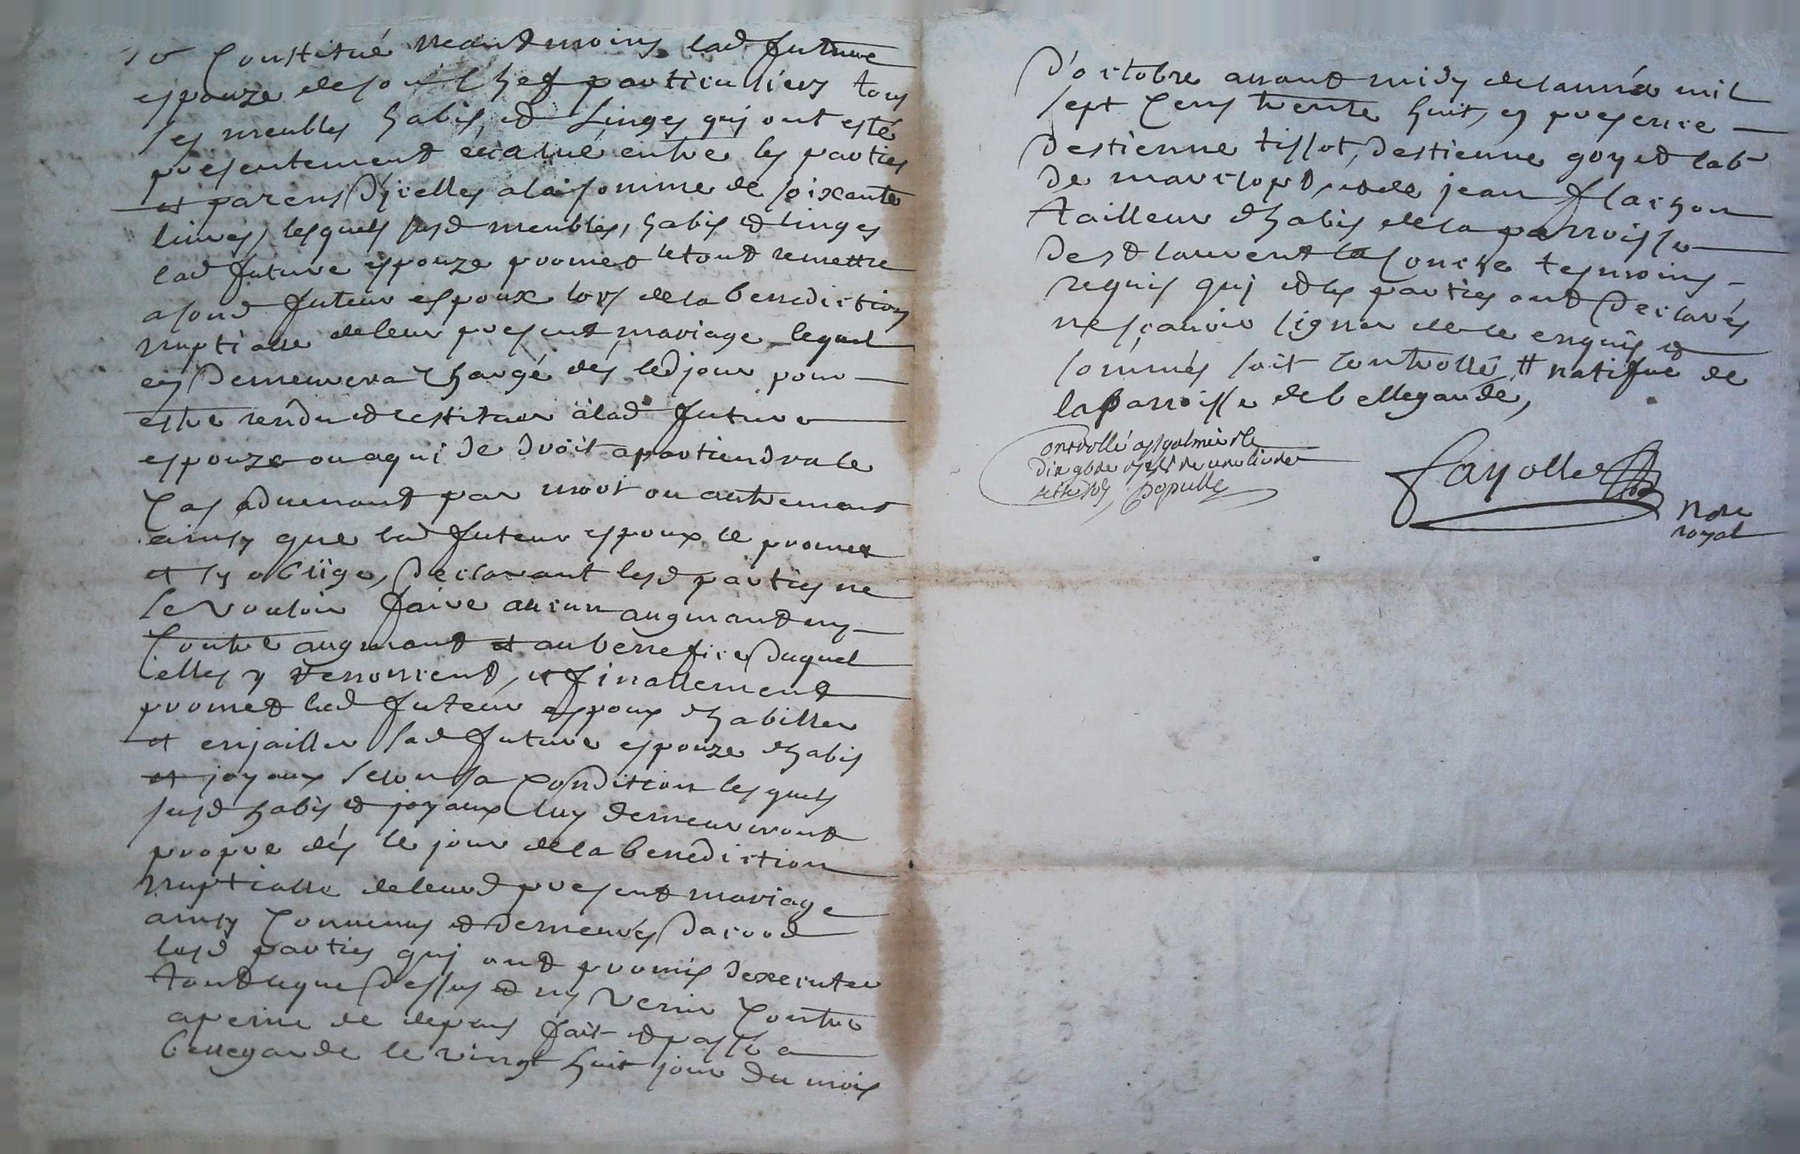 se Constitué neantmoins lad future
espouze de son Chef particulliers tous
ses meubles habis, et Linges qui ont esté
presentement evalué entre les parties
et parens d'jcelles a la somme de soixante
livres, lesquels susd meubles, habis et linges
lad future espouze promet le tout remettre
a sond futeur espoux lors de la benediction
nuptialle de leur present mariage lequel
en demeurera Chargé dés led jour pour
estre rendu et restituer à lad future
espouze ou a qui de droit apartiendra le
Cas advenant par mort ou autrement
ainsy que led futeur espoux le promet
et s'y oblige, declarant lesd parties ne
se vouloir faire aucun augmant ny
Contre augmant et au benefice duquel
elles y renoncent, et finallement
promet led futeur espoux d'habiller
et enjailler sad future espouze d'habis
et joyaux selon sa Condition lesquels
susd habis et joyaux luy demeureront
propre dés le jour de la benediction
nuptialle de leurd present mariage
ainsy Convenus et demeurés dacord
lesd parties qui ont promis d'executer
tout ce que dessus et ny venir Contre
a peine de depens fait et passé a
bellegarde le vingt huit jour du mois
D'octobre avant midy de lannée mil
sept Cens trente huit, en presence
Destienne tissot, destienne goy et lab
de marclopt, et de jean flachon
tailleur d'habis de la parroisse
de st laurent la Conche tesmoins
requis qui et les parties ont declarés
ne sçavoir signer de ce enquis et
sommés soit controllé # natifve de
la parroisse de bellegarde,
Controllé a st galmier le
dix gbre
sette sols
fayolle
nore
royal